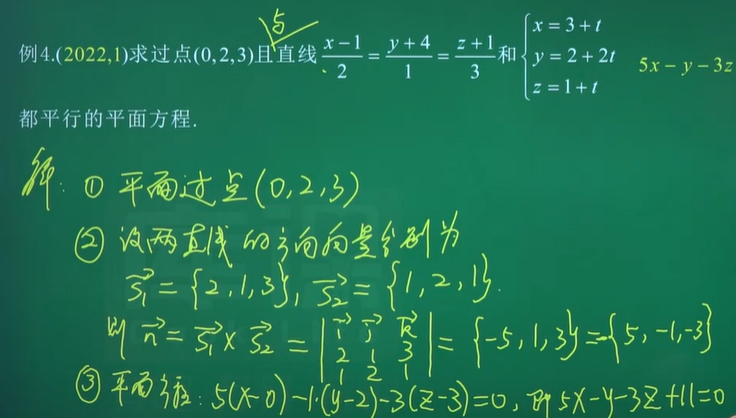 与
例4.(2022,1)求过点(0,2,3)且直线 \frac{x-1}{2}=\frac{y+4}{1}=\frac{z+1}{3} 和 \begin{cases} x=3+t \\ y=2+2t \\ z=1+t \end{cases} 5x-y-3z
都平行的平面方程.
解: ① 平面过点(0,2,3)
② 设两直线的方向向量分别为
\vec{s_1}={2,1,3}, \vec{s_2}={1,2,1}.
则 \vec{n}=\vec{s_1}×\vec{s_2}=\begin{vmatrix} \vec{i} & \vec{j} & \vec{k} \\ 2 & 1 & 3 \\ 1 & 2 & 1 \end{vmatrix}={-5,1,3}={5,-1,-3}
③ 平面方程: 5(x-0)-1·(y-2)-3(z-3)=0, 即 5x-y-3z+11=0